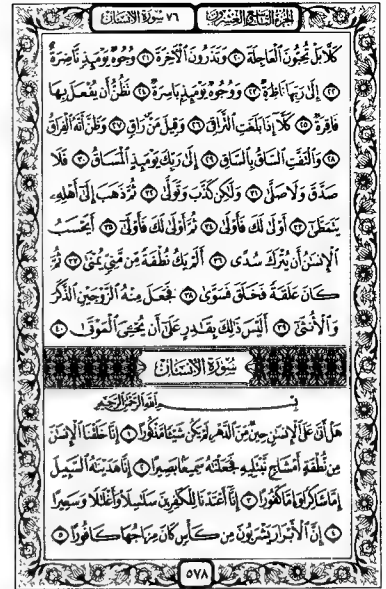 الجزء التاسع والعشرون ٧٦ سورة الإنسان
كَلَّا بَلْ تُحِبُّونَ ٱلْعَاجِلَةَ ٢٠ وَتَذَرُونَ ٱلْءَاخِرَةَ ٢١ وُجُوهٌ يَوْمَئِذٍ نَّاضِرَةٌ
٢٢ إِلَىٰ رَبِّهَا نَاظِرَةٌ ٢٣ وَوُجُوهٌ يَوْمَئِذٍۭ بَاسِرَةٌ ٢٤ تَظُنُّ أَن يُفْعَلَ بِهَا
فَاقِرَةٌ ٢٥ كَلَّآ إِذَا بَلَغَتِ ٱلتَّرَاقِىَ ٢٦ وَقِيلَ مَنْ رَاقٍ ٢٧ وَظَنَّ أَنَّهُ ٱلْفِرَاقُ
٢٨ وَٱلْتَفَّتِ ٱلسَّاقُ بِٱلسَّاقِ ٢٩ إِلَىٰ رَبِّكَ يَوْمَئِذٍ ٱلْمَسَاقُ ٣٠ فَلَا
صَدَّقَ وَلَا صَلَّىٰ ٣١ وَلَٰكِن كَذَّبَ وَتَوَلَّىٰ ٣٢ ثُمَّ ذَهَبَ إِلَىٰٓ أَهْلِهِۦ
يَتَمَطَّىٰٓ ٣٣ أَوْلَىٰ لَكَ فَأَوْلَىٰ ٣٤ ثُمَّ أَوْلَىٰ لَكَ فَأَوْلَىٰٓ ٣٥ أَيَحْسَبُ
ٱلْإِنسَٰنُ أَن يُتْرَكَ سُدًى ٣٦ أَلَمْ يَكُ نُطْفَةً مِّن مَّنِىٍّ يُمْنَىٰ ٣٧ ثُمَّ
كَانَ عَلَقَةً فَخَلَقَ فَسَوَّىٰ ٣٨ فَجَعَلَ مِنْهُ ٱلزَّوْجَيْنِ ٱلذَّكَرَ
وَٱلْأُنثَىٰٓ ٣٩ أَلَيْسَ ذَٰلِكَ بِقَٰدِرٍ عَلَىٰٓ أَن يُحْۦِىَ ٱلْمَوْتَىٰ ٤٠
سُورَةُ الْإِنْسَانِ
بِسْمِ ٱللَّهِ ٱلرَّحْمَٰنِ ٱلرَّحِيمِ
هَلْ أَتَىٰ عَلَى ٱلْإِنسَٰنِ حِينٌ مِّنَ ٱلدَّهْرِ لَمْ يَكُن شَيْـًٔا مَّذْكُورًا ١ إِنَّا خَلَقْنَا ٱلْإِنسَٰنَ
مِن نُّطْفَةٍ أَمْشَاجٍ نَّبْتَلِيهِ فَجَعَلْنَٰهُ سَمِيعًۢا بَصِيرًا ٢ إِنَّا هَدَيْنَٰهُ ٱلسَّبِيلَ
إِمَّا شَاكِرًا وَإِمَّا كَفُورًا ٣ إِنَّآ أَعْتَدْنَا لِلْكَٰفِرِينَ سَلَٰسِلَا۟ وَأَغْلَٰلًا وَسَعِيرًا
٤ إِنَّ ٱلْأَبْرَارَ يَشْرَبُونَ مِن كَأْسٍ كَانَ مِزَاجُهَا كَافُورًا ٥
٥٧٨